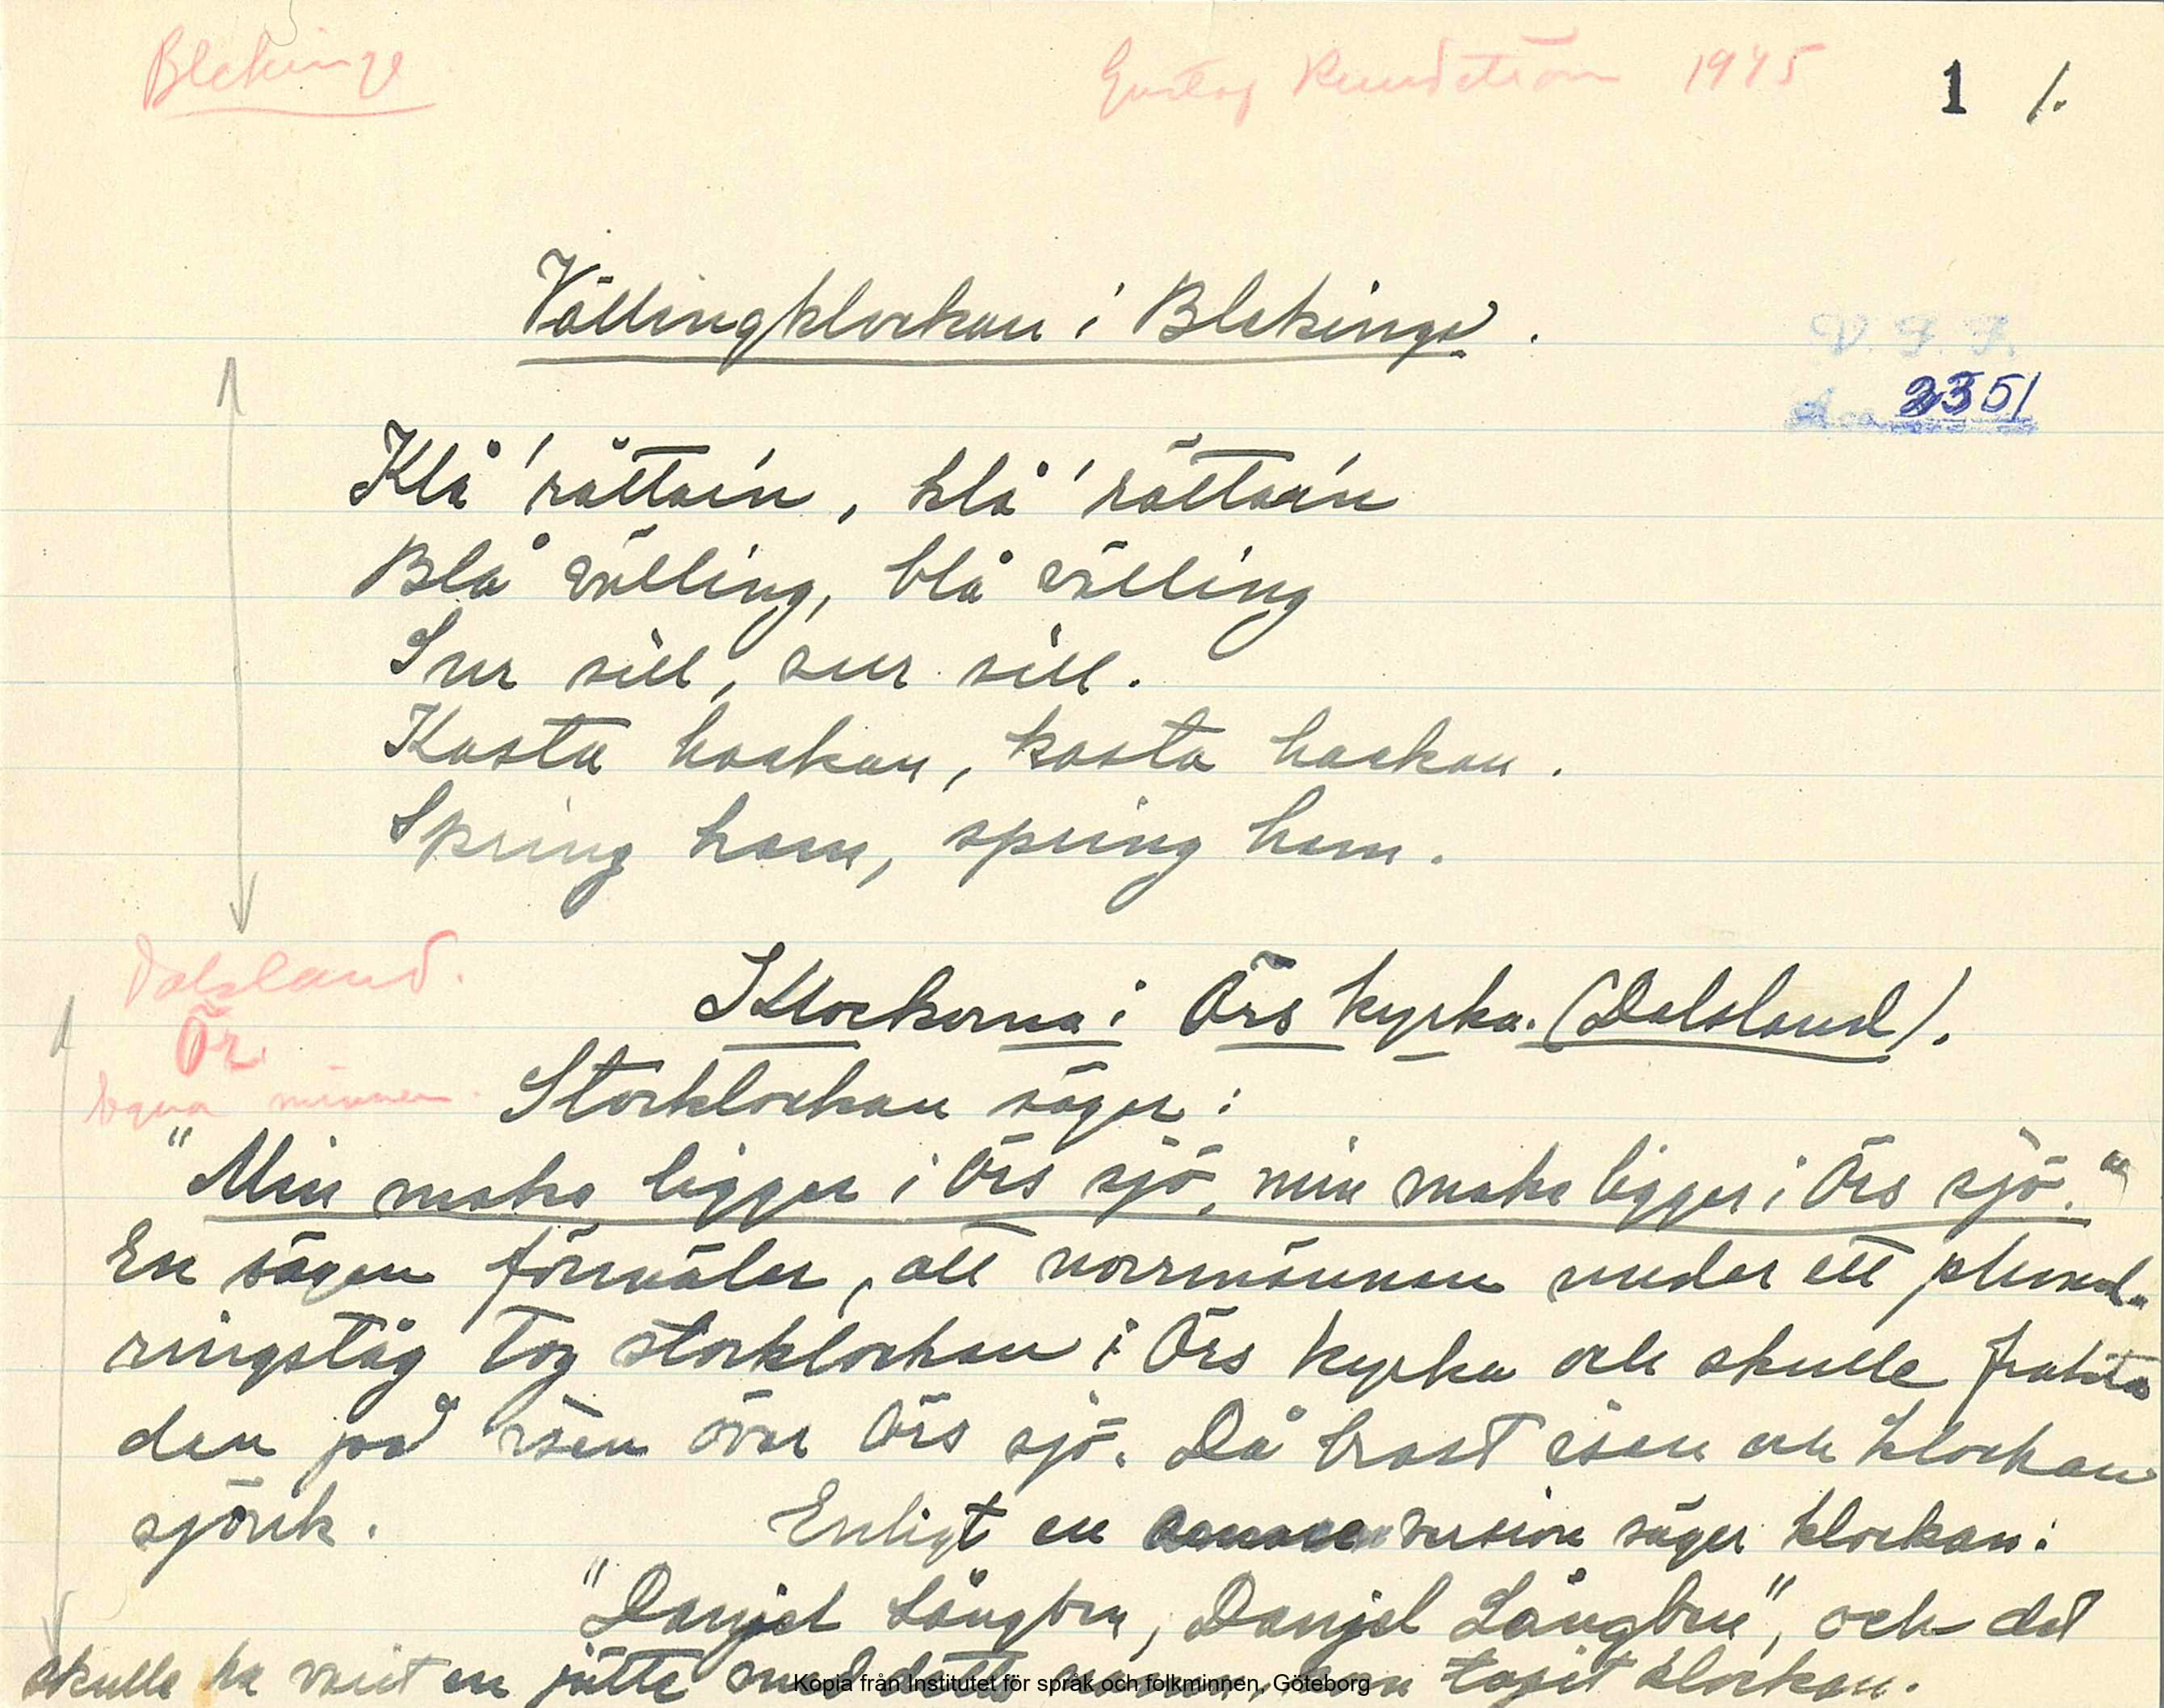 Blekinge
Gustaf Rundström 1945
1 1.
Vällingklockan i Blekinge.
V. F. F.
2351
Klå 'råttain, klå 'råttain
Blå välling, blå välling
Sur sill, sur sill.
Kasta hackan, kasta hackan.
Spring hem, spring hem.
Dalsland.
Ör
Egna minnen.
Klockorna i Örs kyrka. (Dalsland).
Storklockan säger:
"Min maka ligger i Örs sjö, min maka ligger i Örs sjö."
En sägen förmäler, att norrmännen under ett plund-
ringståg tog storklockan i Örs kyrka och skulle frakta
den på isen över Örs sjö. Då brast isen och klockan
sjönk. Enligt en annan version säger klockan:
"Danjel Långben, Danjel Långben", och det
skulle ha varit en jätte med detta namn, som tagit klockan.
Kopia från Institutet för språk och folkminnen, Göteborg